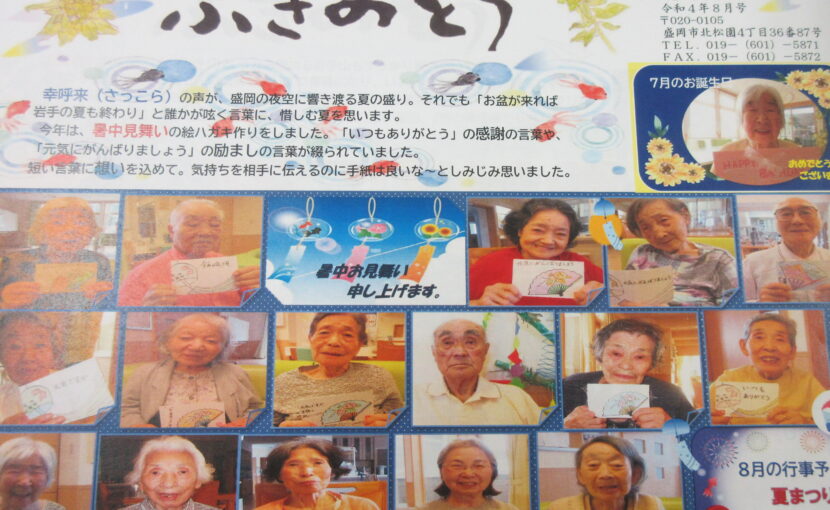 ふきのとう
令和4年8月号
〒020-0105
盛岡市北松園4丁目36番87号
TEL. 019-(601)-5871
FAX. 019-(601)-5872
幸呼来（さっこら）の声が、盛岡の夜空に響き渡る夏の盛り。それでも「お盆が来れば
岩手の夏も終わり」と誰かが呟く言葉に、惜しむ夏を思います。
今年は、暑中見舞いの絵ハガキ作りをしました。「いつもありがとう」の感謝の言葉や、
「元気にがんばりましょう」の励ましの言葉が綴られていました。
短い言葉に想いを込めて。気持ちを相手に伝えるのに手紙は良いな～としみじみ思いました。
7月のお誕生日
おめでとう
ござい
暑中お見舞い
申し上げます。
いつも
ありがとう
8月の行事予
夏まつり